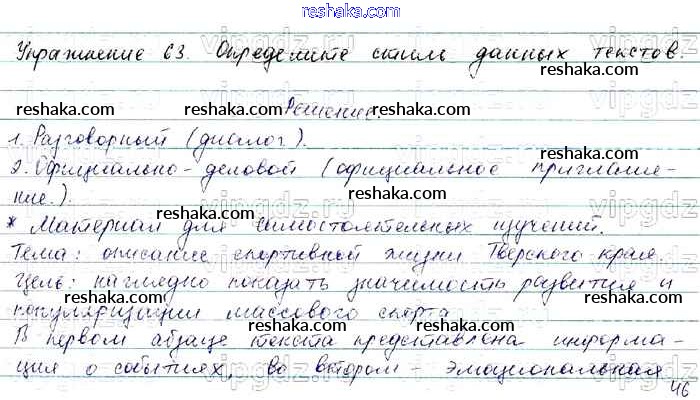 reshaka.com
Упражнение 63. Определите стиль данных текстов.
reshaka.com reshaka.com reshaka.com reshaka.com
Решение.
1. Разговорный (диалог).
2. Официально-деловой (официальное приглаше-
ние.).
reshaka.com reshaka.com reshaka.com reshaka.com
* Материал для самостоятельных изучений.
Тема: описание спортивной жизни Тверского края.
Цель: наглядно показать значимость развития и
популяризации массового спорта
reshaka.com reshaka.com reshaka.com reshaka.com
В первом абзаце текста представлена информа-
ция о событиях, во втором - эмоциональная
46